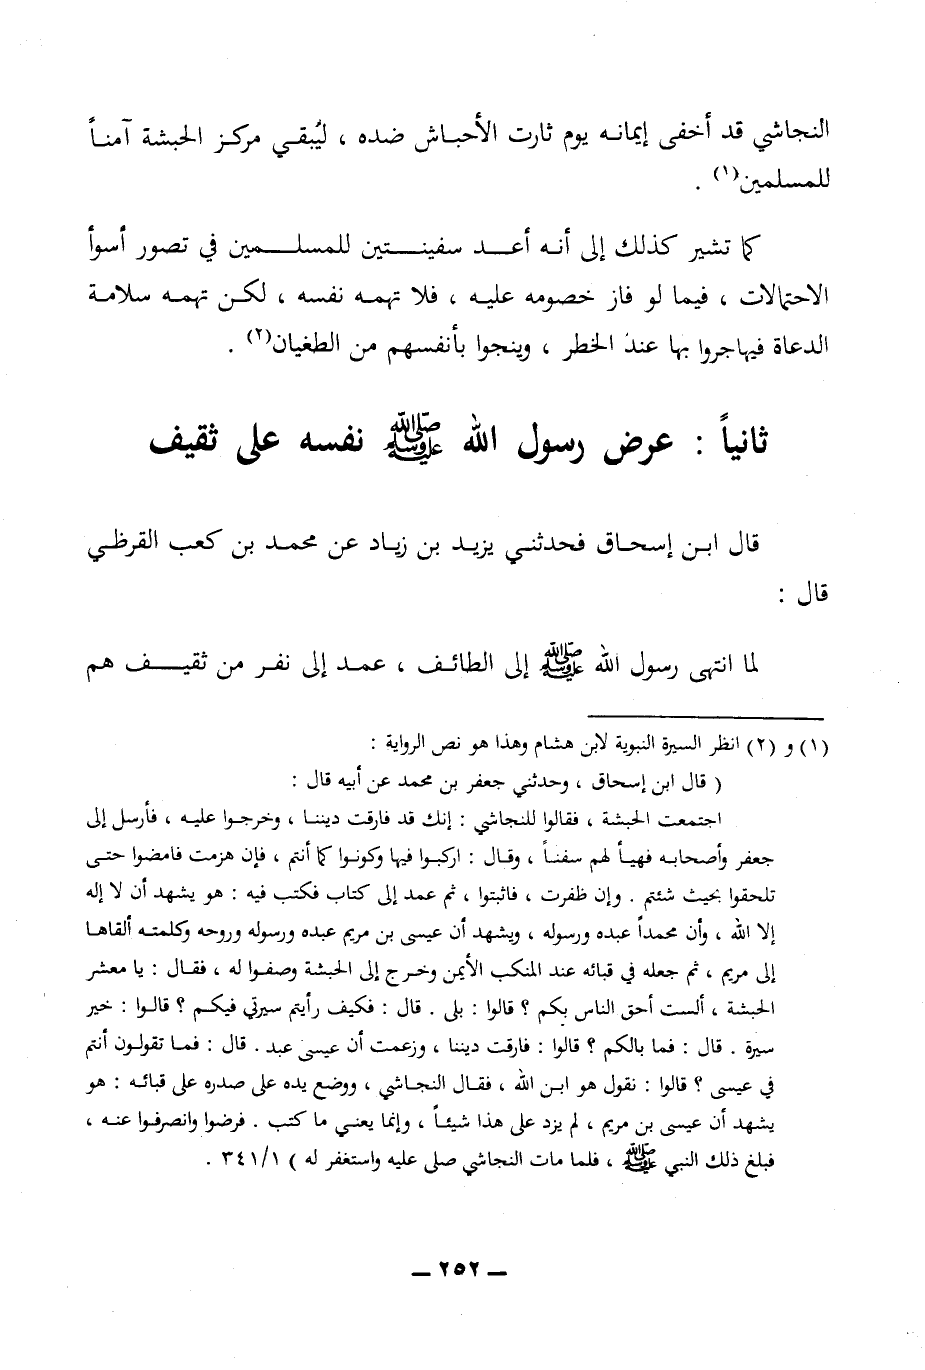 النجاشي قد أخفى إيمانه يوم ثارت الأحباش ضده ، ليُبقي مركز الحبشة آمناً
للمسلمين(١) .
كما تشير كذلك إلى أنه أعد سفينتين للمسلمين في تصور أسوأ
الاحتمالات ، فيما لو فاز خصومه عليه ، فلا تهمه نفسه ، لكن تهمه سلامة
الدعاة فيهاجروا بها عند الخطر ، وينجوا بأنفسهم من الطغيان(٢) .
ثانياً : عرض رسول الله ﷺ نفسه على ثقيف
قال ابن إسحاق فحدثني يزيد بن زياد عن محمد بن كعب القرظي
قال :
لما انتهى رسول الله ﷺ إلى الطائف ، عمد إلى نفر من ثقيف هم
(١) و (٢) انظر السيرة النبوية لابن هشام وهذا هو نص الرواية :
( قال ابن إسحاق ، وحدثني جعفر بن محمد عن أبيه قال :
اجتمعت الحبشة ، فقالوا للنجاشي : إنك قد فارقت ديننا ، وخرجوا عليه ، فأرسل إلى
جعفر وأصحابه فهيأ لهم سفناً ، وقال : اركبوا فيها وكونوا كما أنتم ، فإن هزمت فامضوا حتى
تلحقوا بحيث شئتم . وإن ظفرت ، فاثبتوا ، ثم عمد إلى كتاب فكتب فيه : هو يشهد أن لا إله
إلا الله ، وأن محمداً عبده ورسوله ، ويشهد أن عيسى بن مريم عبده ورسوله وروحه وكلمته ألقاها
إلى مريم ، ثم جعله في قبائه عند المنكب الأيمن وخرج إلى الحبشة وصفوا له ، فقال : يا معشر
الحبشة ، ألست أحق الناس بكم ؟ قالوا : بلى . قال : فكيف رأيتم سيرتي فيكم ؟ قالوا : خير
سيرة . قال : فما بالكم ؟ قالوا : فارقت ديننا ، وزعمت أن عيسى عبد . قال : فما تقولون أنتم
في عيسى ؟ قالوا : نقول هو ابن الله ، فقال النجاشي ، ووضع يده على صدره على قبائه : هو
يشهد أن عيسى بن مريم ، لم يزد على هذا شيئاً ، وإنما يعني ما كتب . فرضوا وانصرفوا عنه ،
فبلغ ذلك النبي ﷺ ، فلما مات النجاشي صلى عليه واستغفر له ) ٣٤١/١ .
— ٢٥٢ —